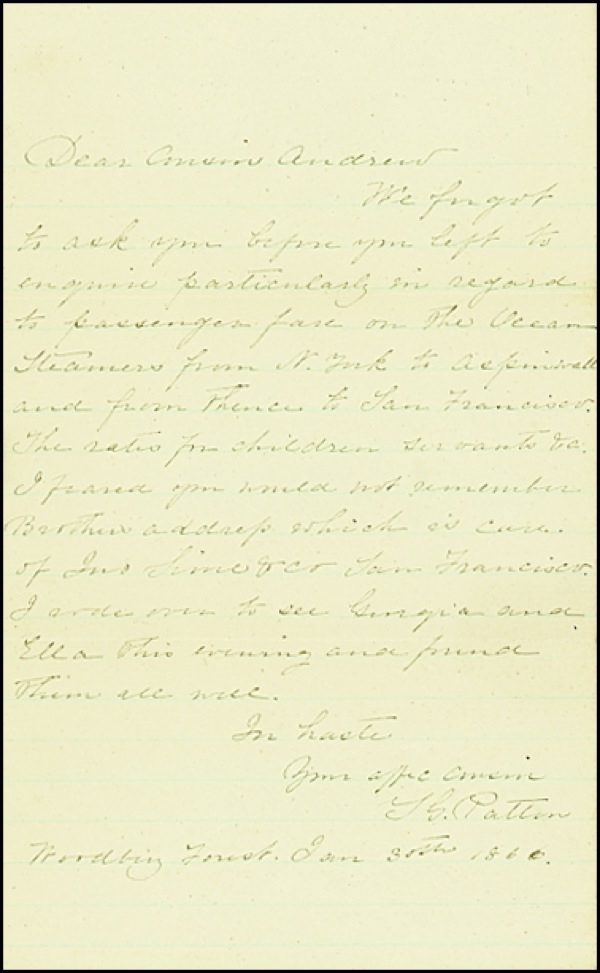 Dear Cousin Andrew
We forgot
to ask you before you left to
enquire particularly in regard
to passenger fare on the Ocean
Steamers from N. York to Aspinwall
and from thence to San Francisco.
The rates for children servants &c.
I feared you would not remember
Brothers address which is care
of Jno Sime & co San Francisco.
I rode over to see Georgia and
Ella this evening and found
them all well.
In haste
Your affec cousin
Patton
Forest. Jan 30th